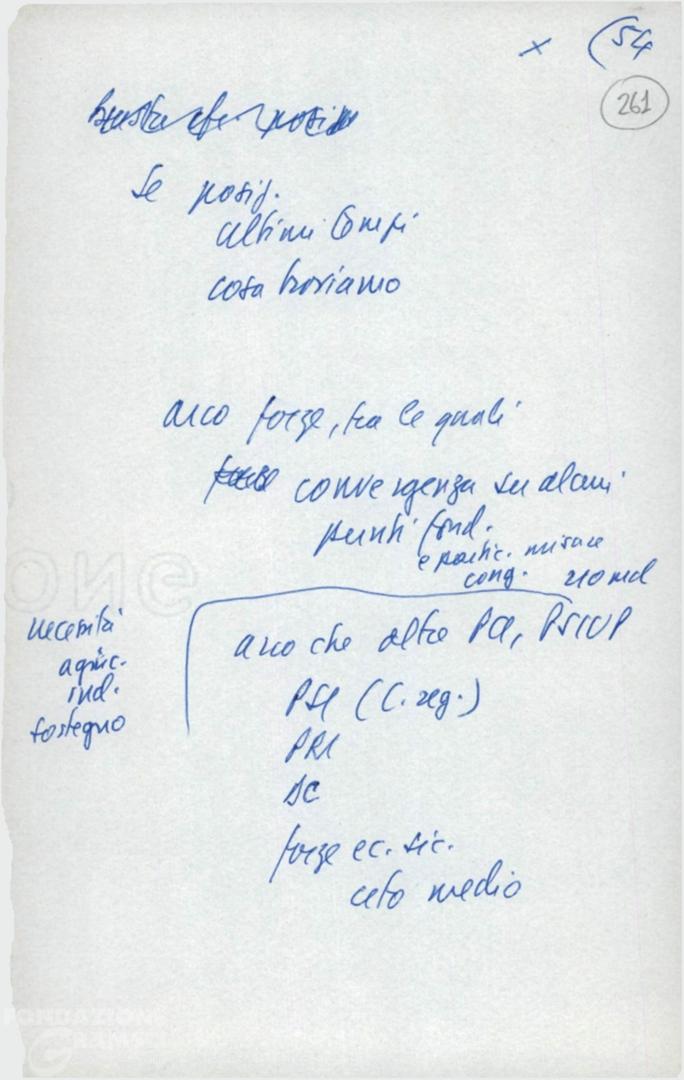 x (54
261
Se posiz.
ultimi tempi
cosa troviamo
arco forze, tra le quali
convergenza su alcuni
punti fond.
e partic. misure
cong. 210 md
necessità
agric.
ind.
sostegno
arco che oltre PCI, PSIUP
PSI (C. reg.)
PRI
DC
forze ec. sic.
ceto medio
one
FONDAZIONE
GRAMSCI